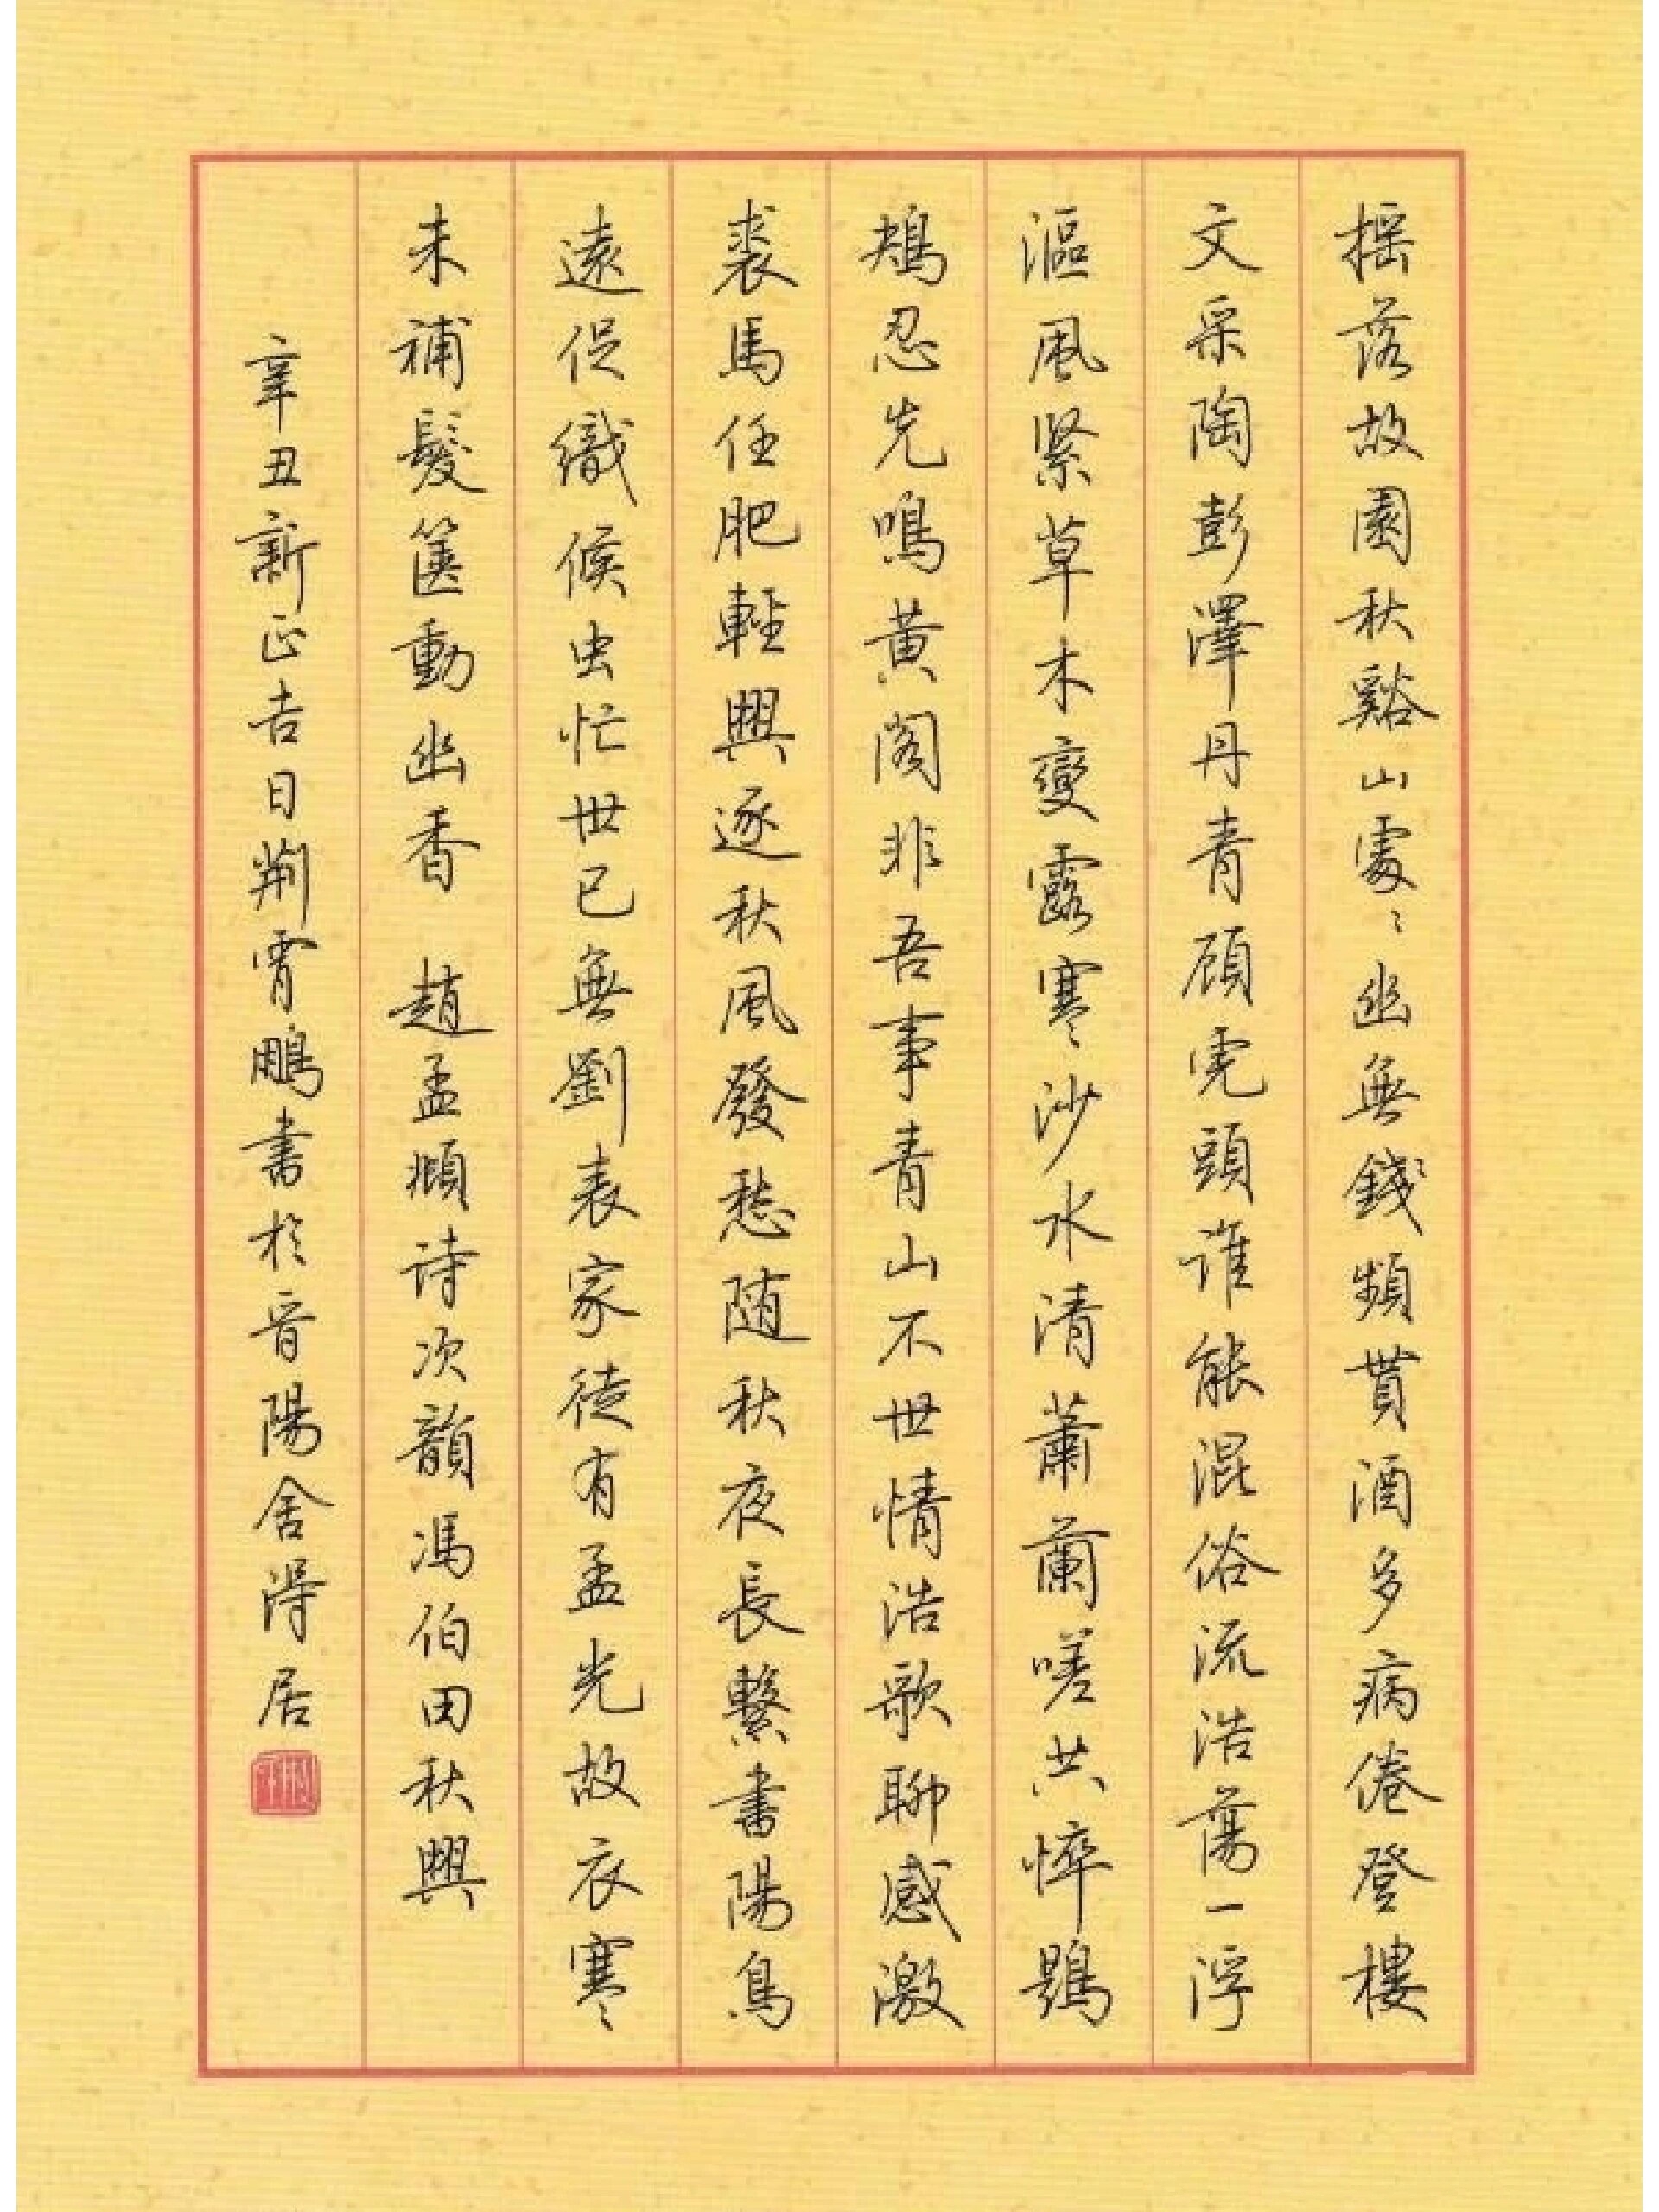 摇落故園秋谿山處〻幽無錢頻貰酒多病倦登樓
文采陶彭澤丹青顧虎頭谁能混俗流浩蕩一浮
漚風緊草木變露寒沙水清蕭蘭嗟共悴鶗
鴂忍先鳴黄阁非吾事青山不世情浩歌聊感激
裘馬任肥輕興逐秋風發愁随秋夜長繫書陽鳥
遠促織候虫忙世已無劉表家徒有孟光故衣寒
未補髮箧動幽香 趙孟頫诗次韻馮伯田秋興
辛丑新正吉日荆霄鵬書於晋陽舍得居